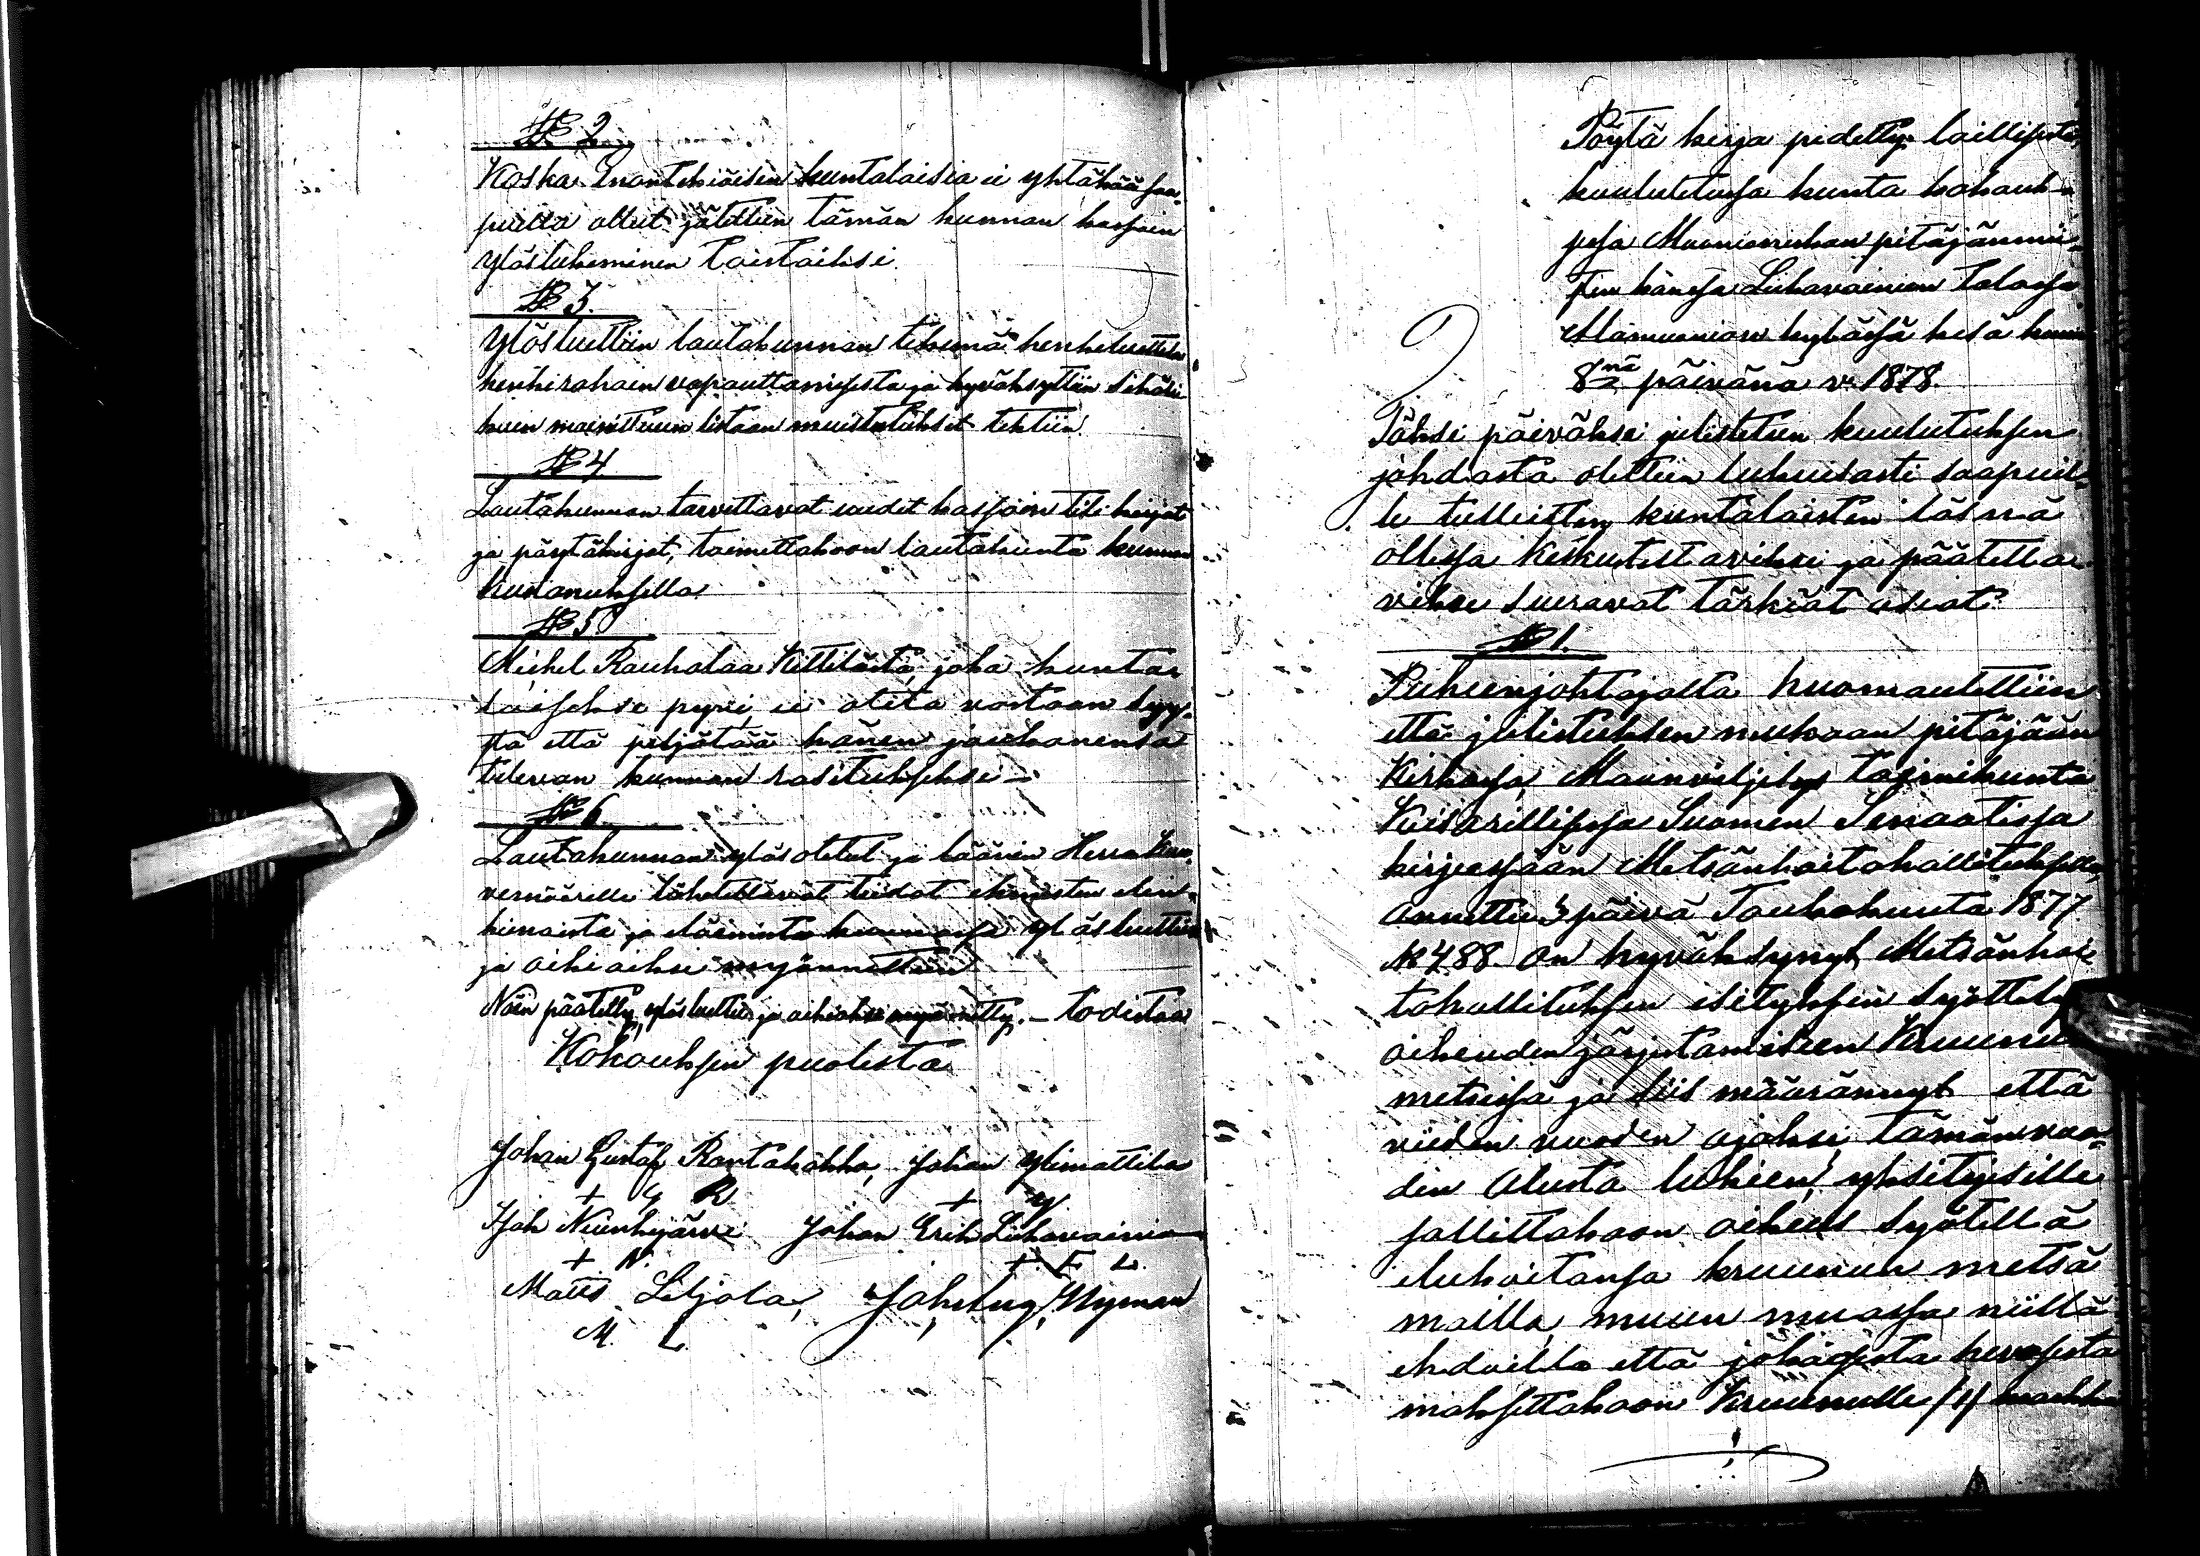 № 2
Koska Enontekiäisen kuntalaisia ei yhtäkää saa-
puilla ollut jätettiin tämän kunnan kassain
ylöslukeminen toistaiseksi.
№ 3.
Ylösluettiin lautakunnan tekemä henkiluettelo
henkirahain vapauttamisesta ja hyväksyttiin sikäli
kuin mainittuun listaan muistutukset tehtiin.
№ 4
Lautakunnan tarvittavat uudet kassain tili kirjat
ja pöytäkirjat, toimittakoon lautakunta kunnan
kustanuksella
№ 5
Michel Rauhalaa Kittilästä, joka kunta-
laiseksi pyri ei oteta vastaan syy-
stä että peljätää hänen joukonensa
tulevan kunnan rasitukseksi –
№ 6.
Lautakunnan ylös otetut ja läänin Herra Kuu-
vernöörille lähetettävät tiedot ihmisten elin-
keinoista ja eläimistä kunnassa ylösluettiin
ja oikiaksi myönnettiin
Näin päätetty, ylösluettu ja oikiaksi myönnetty. – todistaa
Kokouksen puolesta
Johan Gustaf Rantakokko, Johan Ylimattila
+ G R + Y
Isak Niemijärvi Johan Erik Liikavainio
+ N. + E L.
Matts Liljola, Joh. Aug. Nyman
M. L.
Pöytä kirja pidetty laillisesti
kuulutetussa kunta kokouk-
sessa Muonionniskan pitäjänmie-
sten känssä Liikavainion talossa
Alamuonion kylässä kesä kuun
8nä päivänä v. 1878.
Täksi päiväksi julistetun kuulutuksen
johdosta olettiin lukuisasti saapuil-
le tulleitten kuntalaisten läsnä
ollessa keskusteltaviksi ja päätettä-
viksi seuravat tärkiät asiat
№ 1.
Puheenjohtajalta huomautettiin
että julistuksen mukaan pitäjään
Kirkossa, Maanviljelys toimikunta
Keisarillisessa Suomen Senaatissa
kirjeessään Metsänhoitohallitukselle,
annettu 3 päivä Toukokuuta 1877
№ 488. on hyväksynyt Metsänhoi-
tohallituksen esityksen syöttely
oikeuden järjestämiseen Kruunun
metsissä ja siis määrännyt että
viiden vuoden ajaksi, tämän vuo-
den alusta lukien, yksityisille
sallittakoon oikeus syötellä
elukoitansa kruunun metsä
mailla, muun muassa niillä
ehdoilla että jokaisesta hevosesta
maksettakoon Kruunulle (1) markka